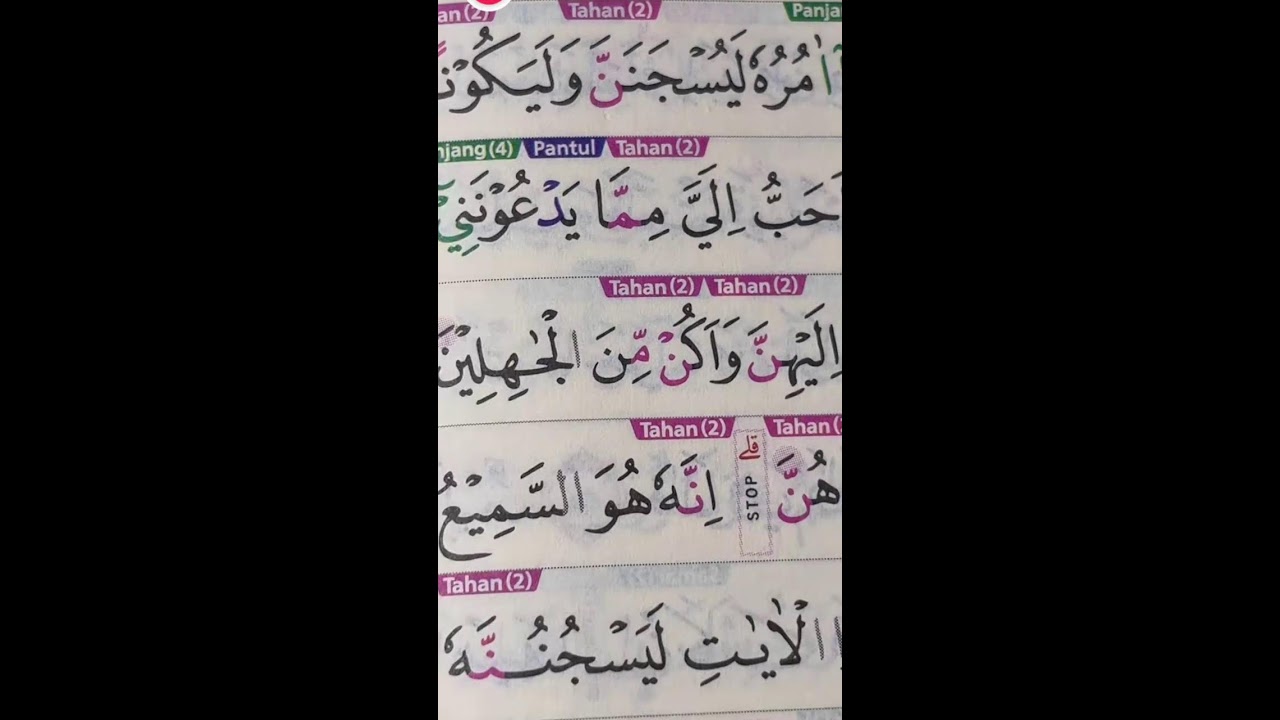 an (2) Tahan (2) Panja
اٰمُرُهٗ لَيُسْجَنَنَّ وَلَيَكُوْنً
njang (4) Pantul Tahan (2)
اَحَبُّ اِلَيَّ مِمَّا يَدْعُوْنَنِيْٓ
Tahan (2) Tahan (2)
اِلَيْهِنَّ وَاَكُنْ مِّنَ الْجٰهِلِيْنَ
Tahan (2) Tahan (
هُنَّ ۗ STOP اِنَّهٗ هُوَ السَّمِيْعُ
Tahan (2)
الْاٰيٰتِ لَيَسْجُنُنَّهٗ